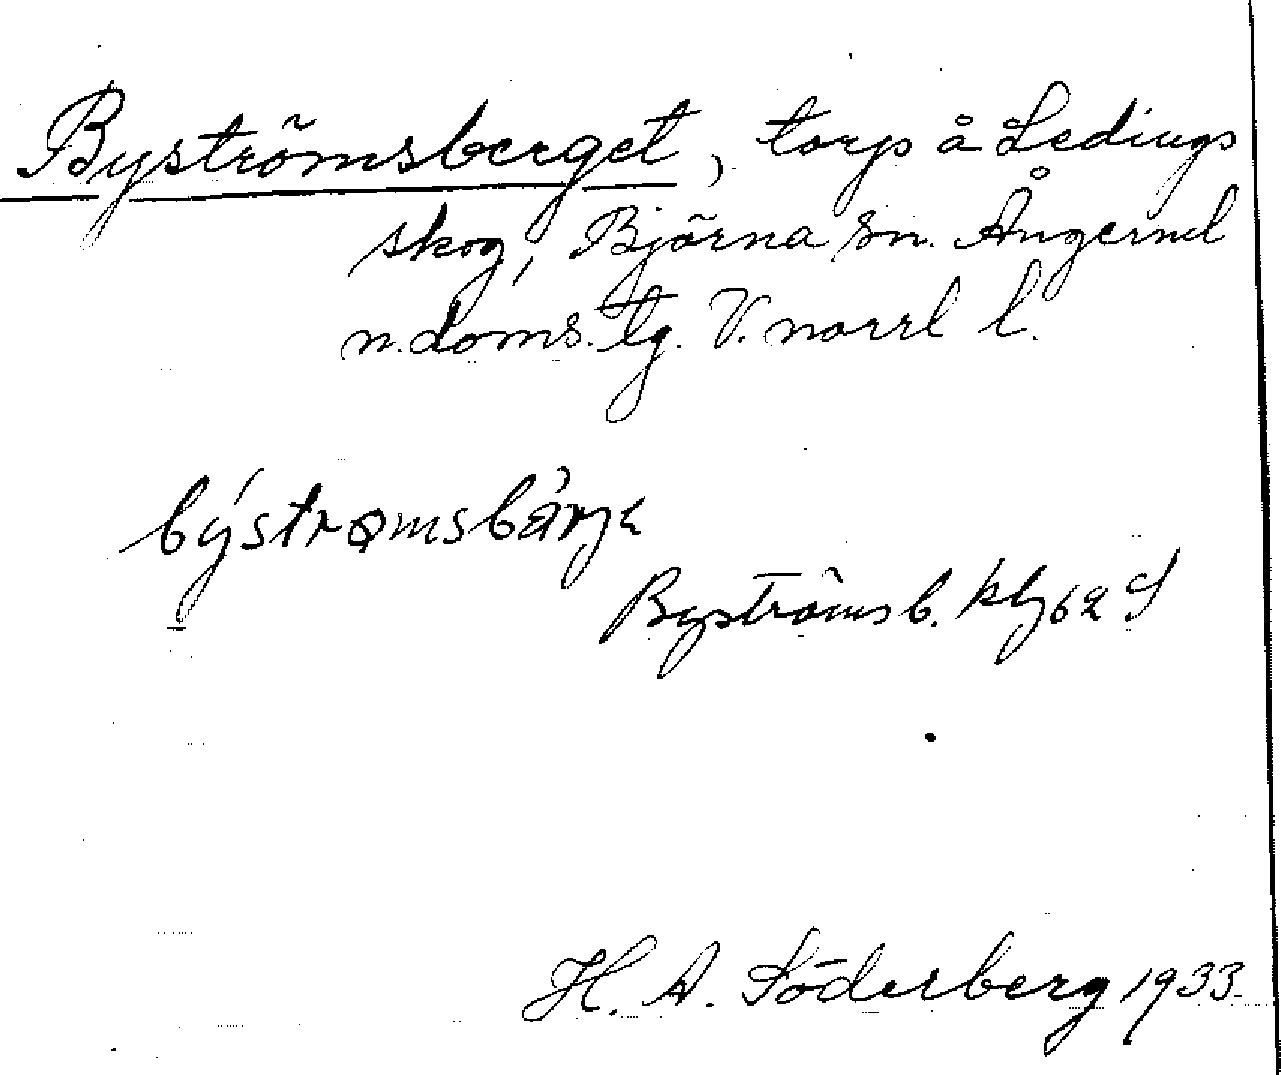 Byströmsberget, torp å Ledings
skog, Björna sn. Ångerml
n. doms. tg. V. norrl l.
býstrømsbärje
Byströmsb. kbg 62 S
H. A. Söderberg 1933